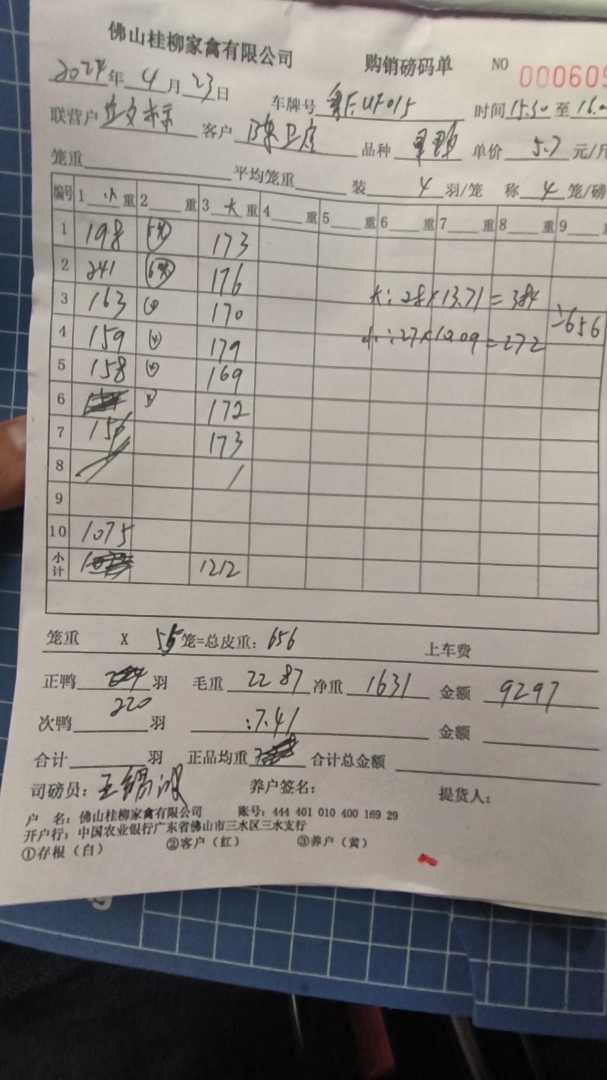 佛山桂柳家禽有限公司 购销磅码单 NO 000609
2024年 4 月 23 日 车牌号 时间 15.50 至 16.0
联营户 客户 品种 单价 5.7 元/斤
笼重 平均笼重 装 4 羽/笼 称 4 笼/磅
编号 1 小 重 2 重 3 大 重 4 重 5 重 6 重 7 重 8 重 9
1 198 173
2 241 176
3 163 170 大:28×13.71=384
4 159 179 小:27×10.09=272 =656
5 158 169
6 172
7 156 173
8
9
10 1075
小计 1212
笼重 X 55 笼=总皮重: 656 上车费
正鸭 220 羽 毛重 2287 净重 1631 金额 9297
次鸭 羽 :7.41 金额
合计 羽 正品均重 合计总金额
司磅员: 养户签名: 提货人:
户 名: 佛山桂柳家禽有限公司 账号: 444 401 010 400 169 29
开户行: 中国农业银行广东省佛山市三水区三水支行
①存根（白） ②客户（红） ③养户（黄）